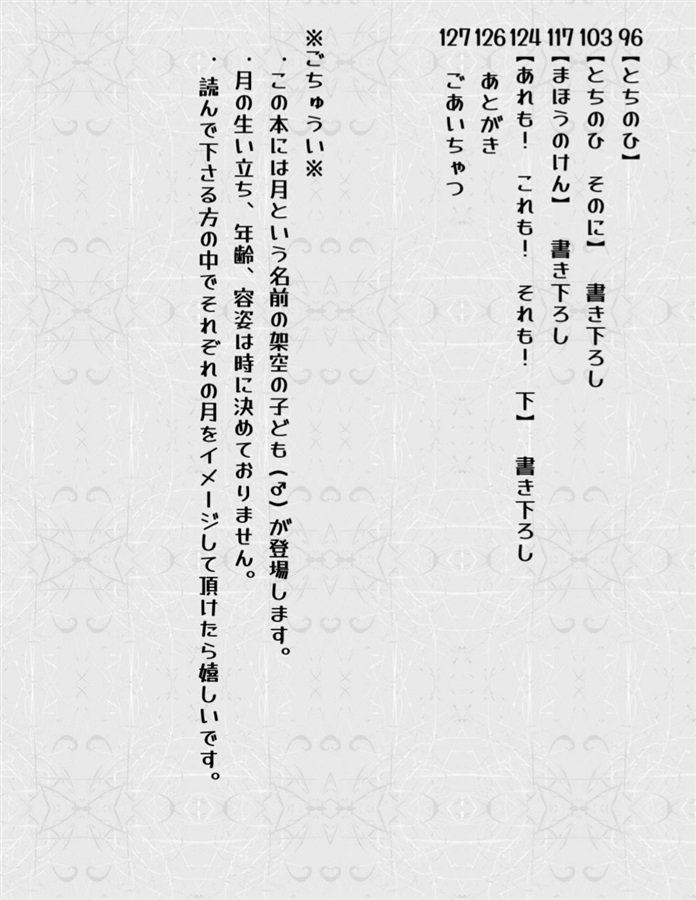 96【とちのひ】
103【とちのひ　そのに】　書き下ろし
117【まほうのけん】　書き下ろし
124【あれも！　これも！　それも！　下】　書き下ろし
126　あとがき
127　ごあいちゃつ
※ごちゅうい※
・この本には月という名前の架空の子ども(♂)が登場します。
・月の生い立ち、年齢、容姿は時に決めておりません。
・読んで下さる方の中でそれぞれの月をイメージして頂けたら嬉しいです。